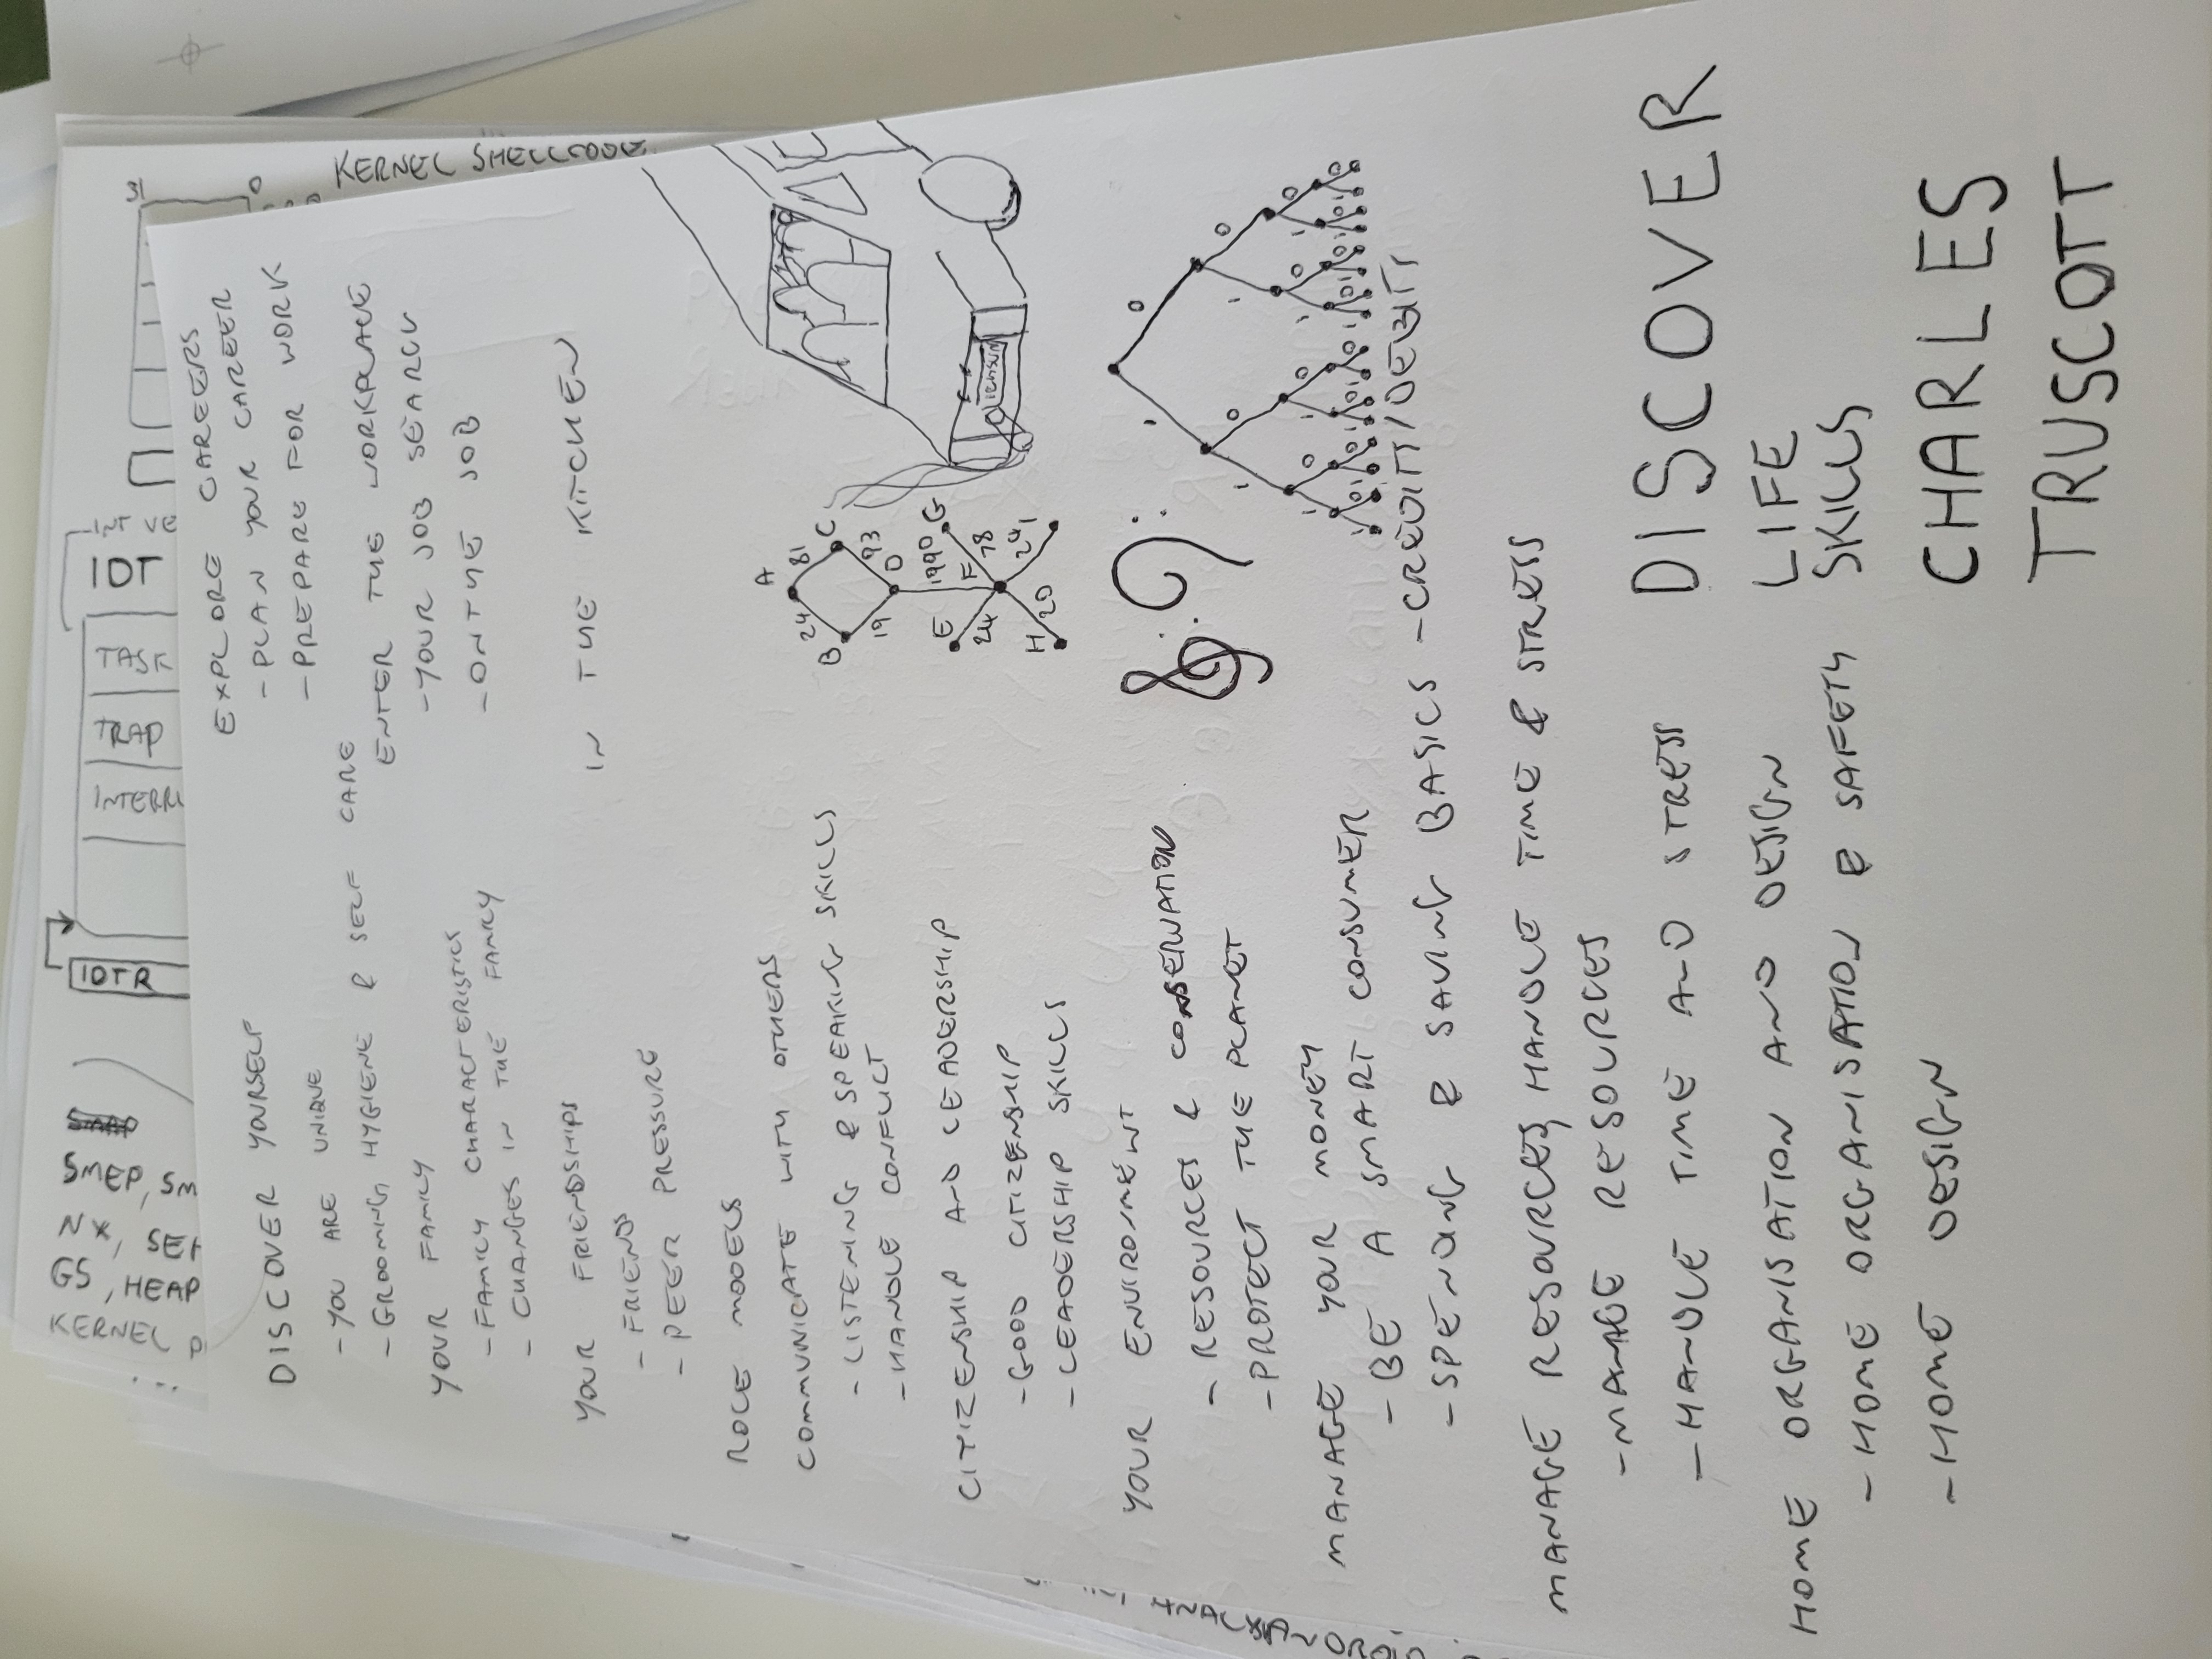 SMEP, SM
NX, SE
GS, HEAP
KERNEL P
IDTR
INTERR
TRAP
TASK
IDT
INT VE
31
0
KERNEL SHELLCODE
DISCOVER YOURSELF
- YOU ARE UNIQUE
- GROOMING, HYGIENE & SELF CARE
YOUR FAMILY
- FAMILY CHARACTERISTICS
- CHANGES IN THE FAMILY
YOUR FRIENDSHIPS
- FRIENDS
- PEER PRESSURE
ROLE MODELS
COMMUNICATE WITH OTHERS
- LISTENING & SPEAKING SKILLS
- HANDLE CONFLICT
CITIZENSHIP AND LEADERSHIP
- GOOD CITIZENSHIP
- LEADERSHIP SKILLS
YOUR ENVIRONMENT
- RESOURCES & CONSERVATION
- PROTECT THE PLANET
MANAGE YOUR MONEY
- BE A SMART CONSUMER
- SPENDING & SAVING BASICS - CREDITS/DEBITS
MANAGE RESOURCES, HANDLE TIME & STRESS
- MANAGE RESOURCES
- HANDLE TIME AND STRESS
HOME ORGANISATION AND DESIGN
- HOME ORGANISATION & SAFETY
- HOME DESIGN
EXPLORE CAREERS
- PLAN YOUR CAREER
- PREPARE FOR WORK
ENTER THE WORKPLACE
- YOUR JOB SEARCH
- ON THE JOB
IN THE KITCHEN
A
24 81
B C
19 93
D
E 1990 G
24 F 78
H 20 24 I
1 0
1 0 1 0
1 0 1 0 1 0 1 0
1 0 1 0 1 0 1 0 1 0 1 0 1 0 1 0
DISCOVER
LIFE
SKILLS
CHARLES
TRUSCOTT